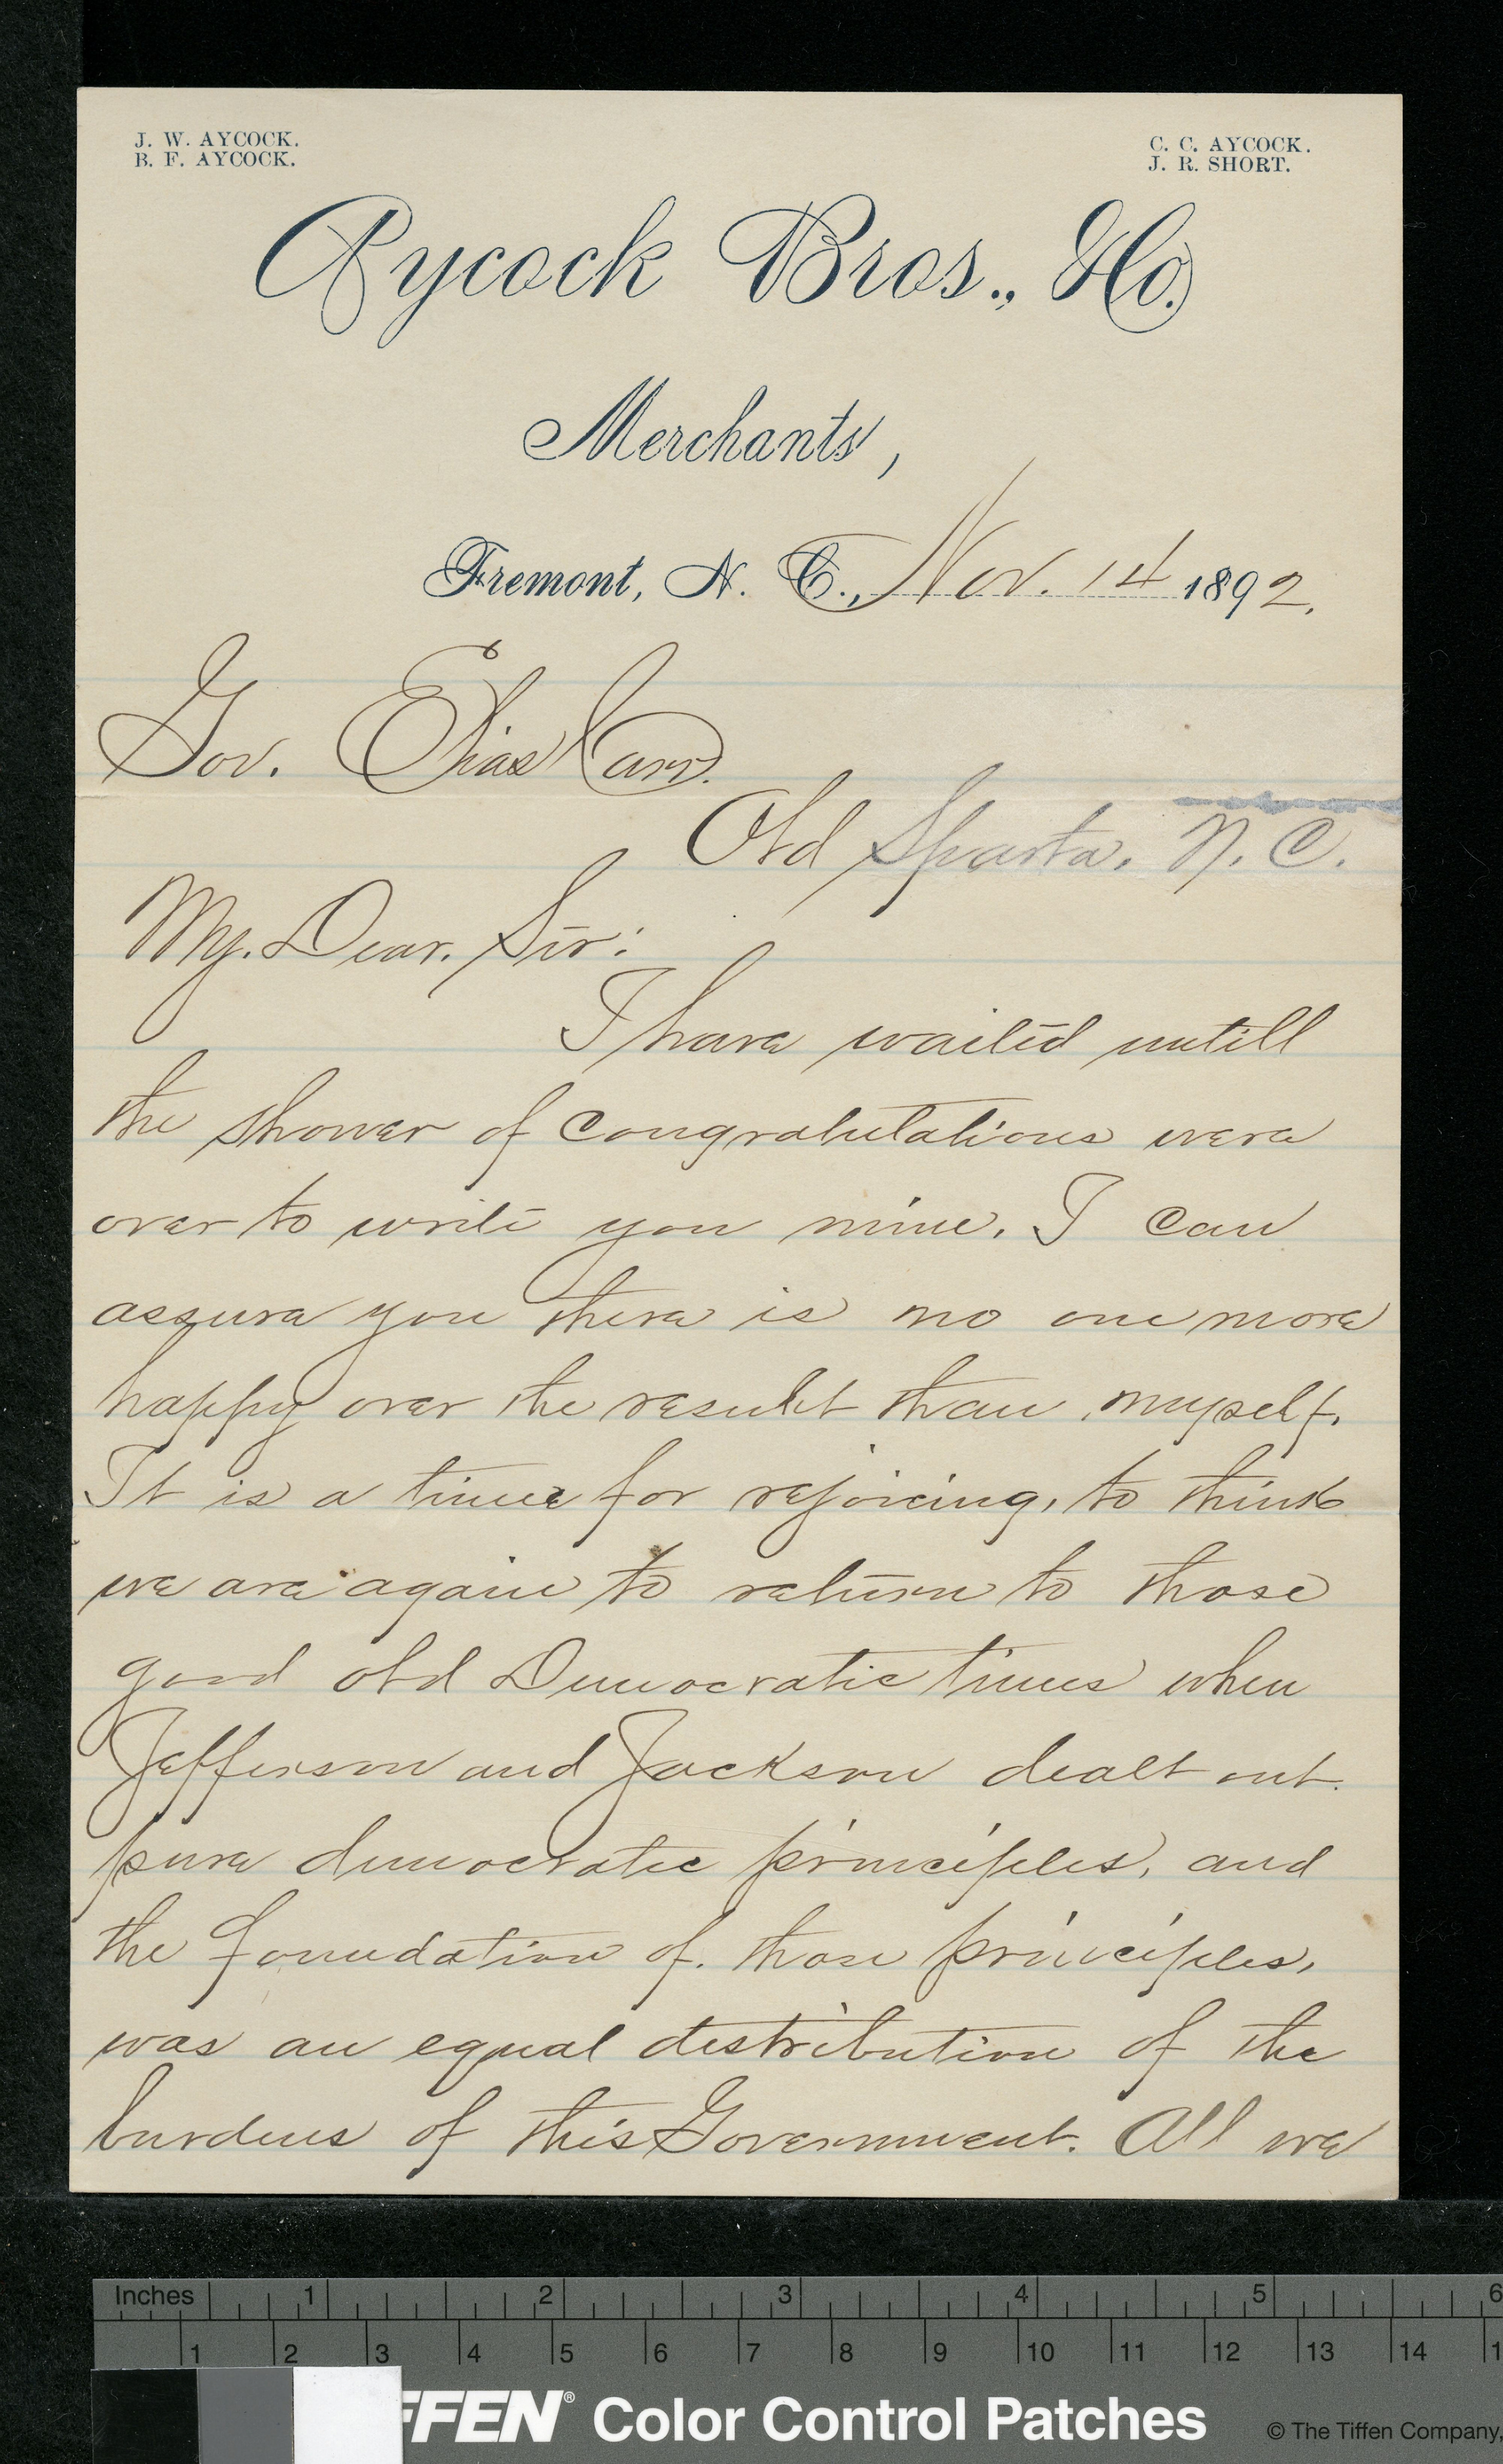 J. W. AYCOCK.
B. F. AYCOCK.
C. C. AYCOCK.
J. R. SHORT.
Aycock Bros., & Co.
Merchants,
Fremont, N. C., Nov. 14 1892.
Gov. Elias Carr.
Old Sparta, N. C.
My. Dear. Sir:
I have waited untill
the shower of congratulations were
over to write you mine. I can
assure you there is no one more
happy over the result than myself.
It is a time for rejoicing, to think
we are again to return to those
good old Democratic times when
Jefferson and Jackson dealt out
pure democratic principles, and
the foundation of. those principles,
was an equal destribution of the
burdens of this Government. All we
Inches 1 2 3 4 5 6
1 2 3 4 5 6 7 8 9 10 11 12 13 14 1
FFEN® Color Control Patches
© The Tiffen Company,